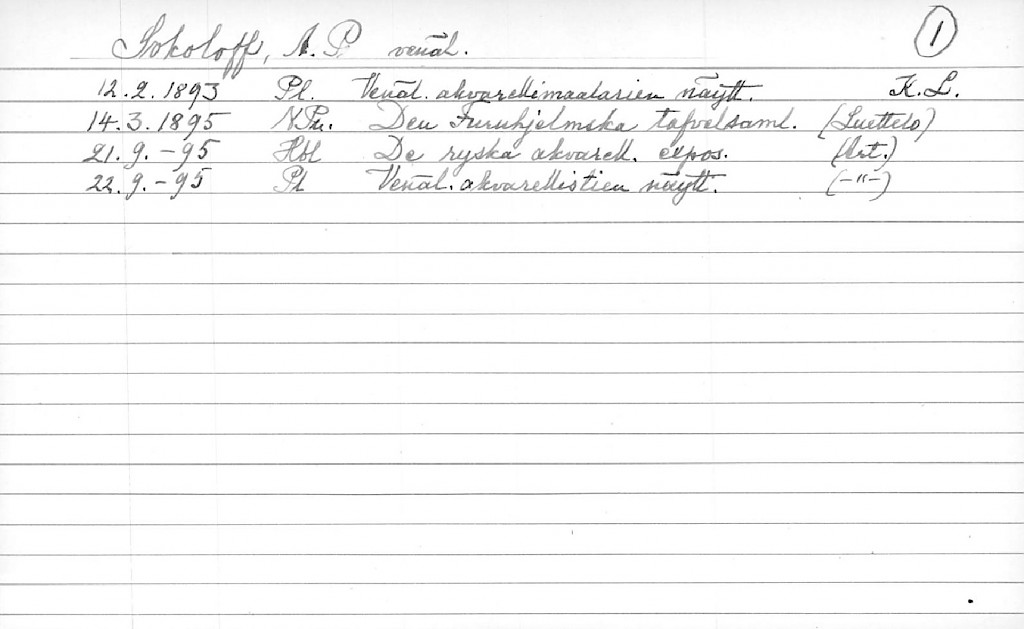 Sokoloff, A. P. venäl. 1
12.2.1893 Pl. Venäl. akvarellimaalarien näytt. K.L.
14.3.1895 N.Pr. Den Furuhjelmska tafvelsaml. (Luettelo)
21.9.-95 Hbl De ryska akvarell. expos. (Art.)
22.9.-95 Pl Venäl. akvarellistien näytt. (-"-)